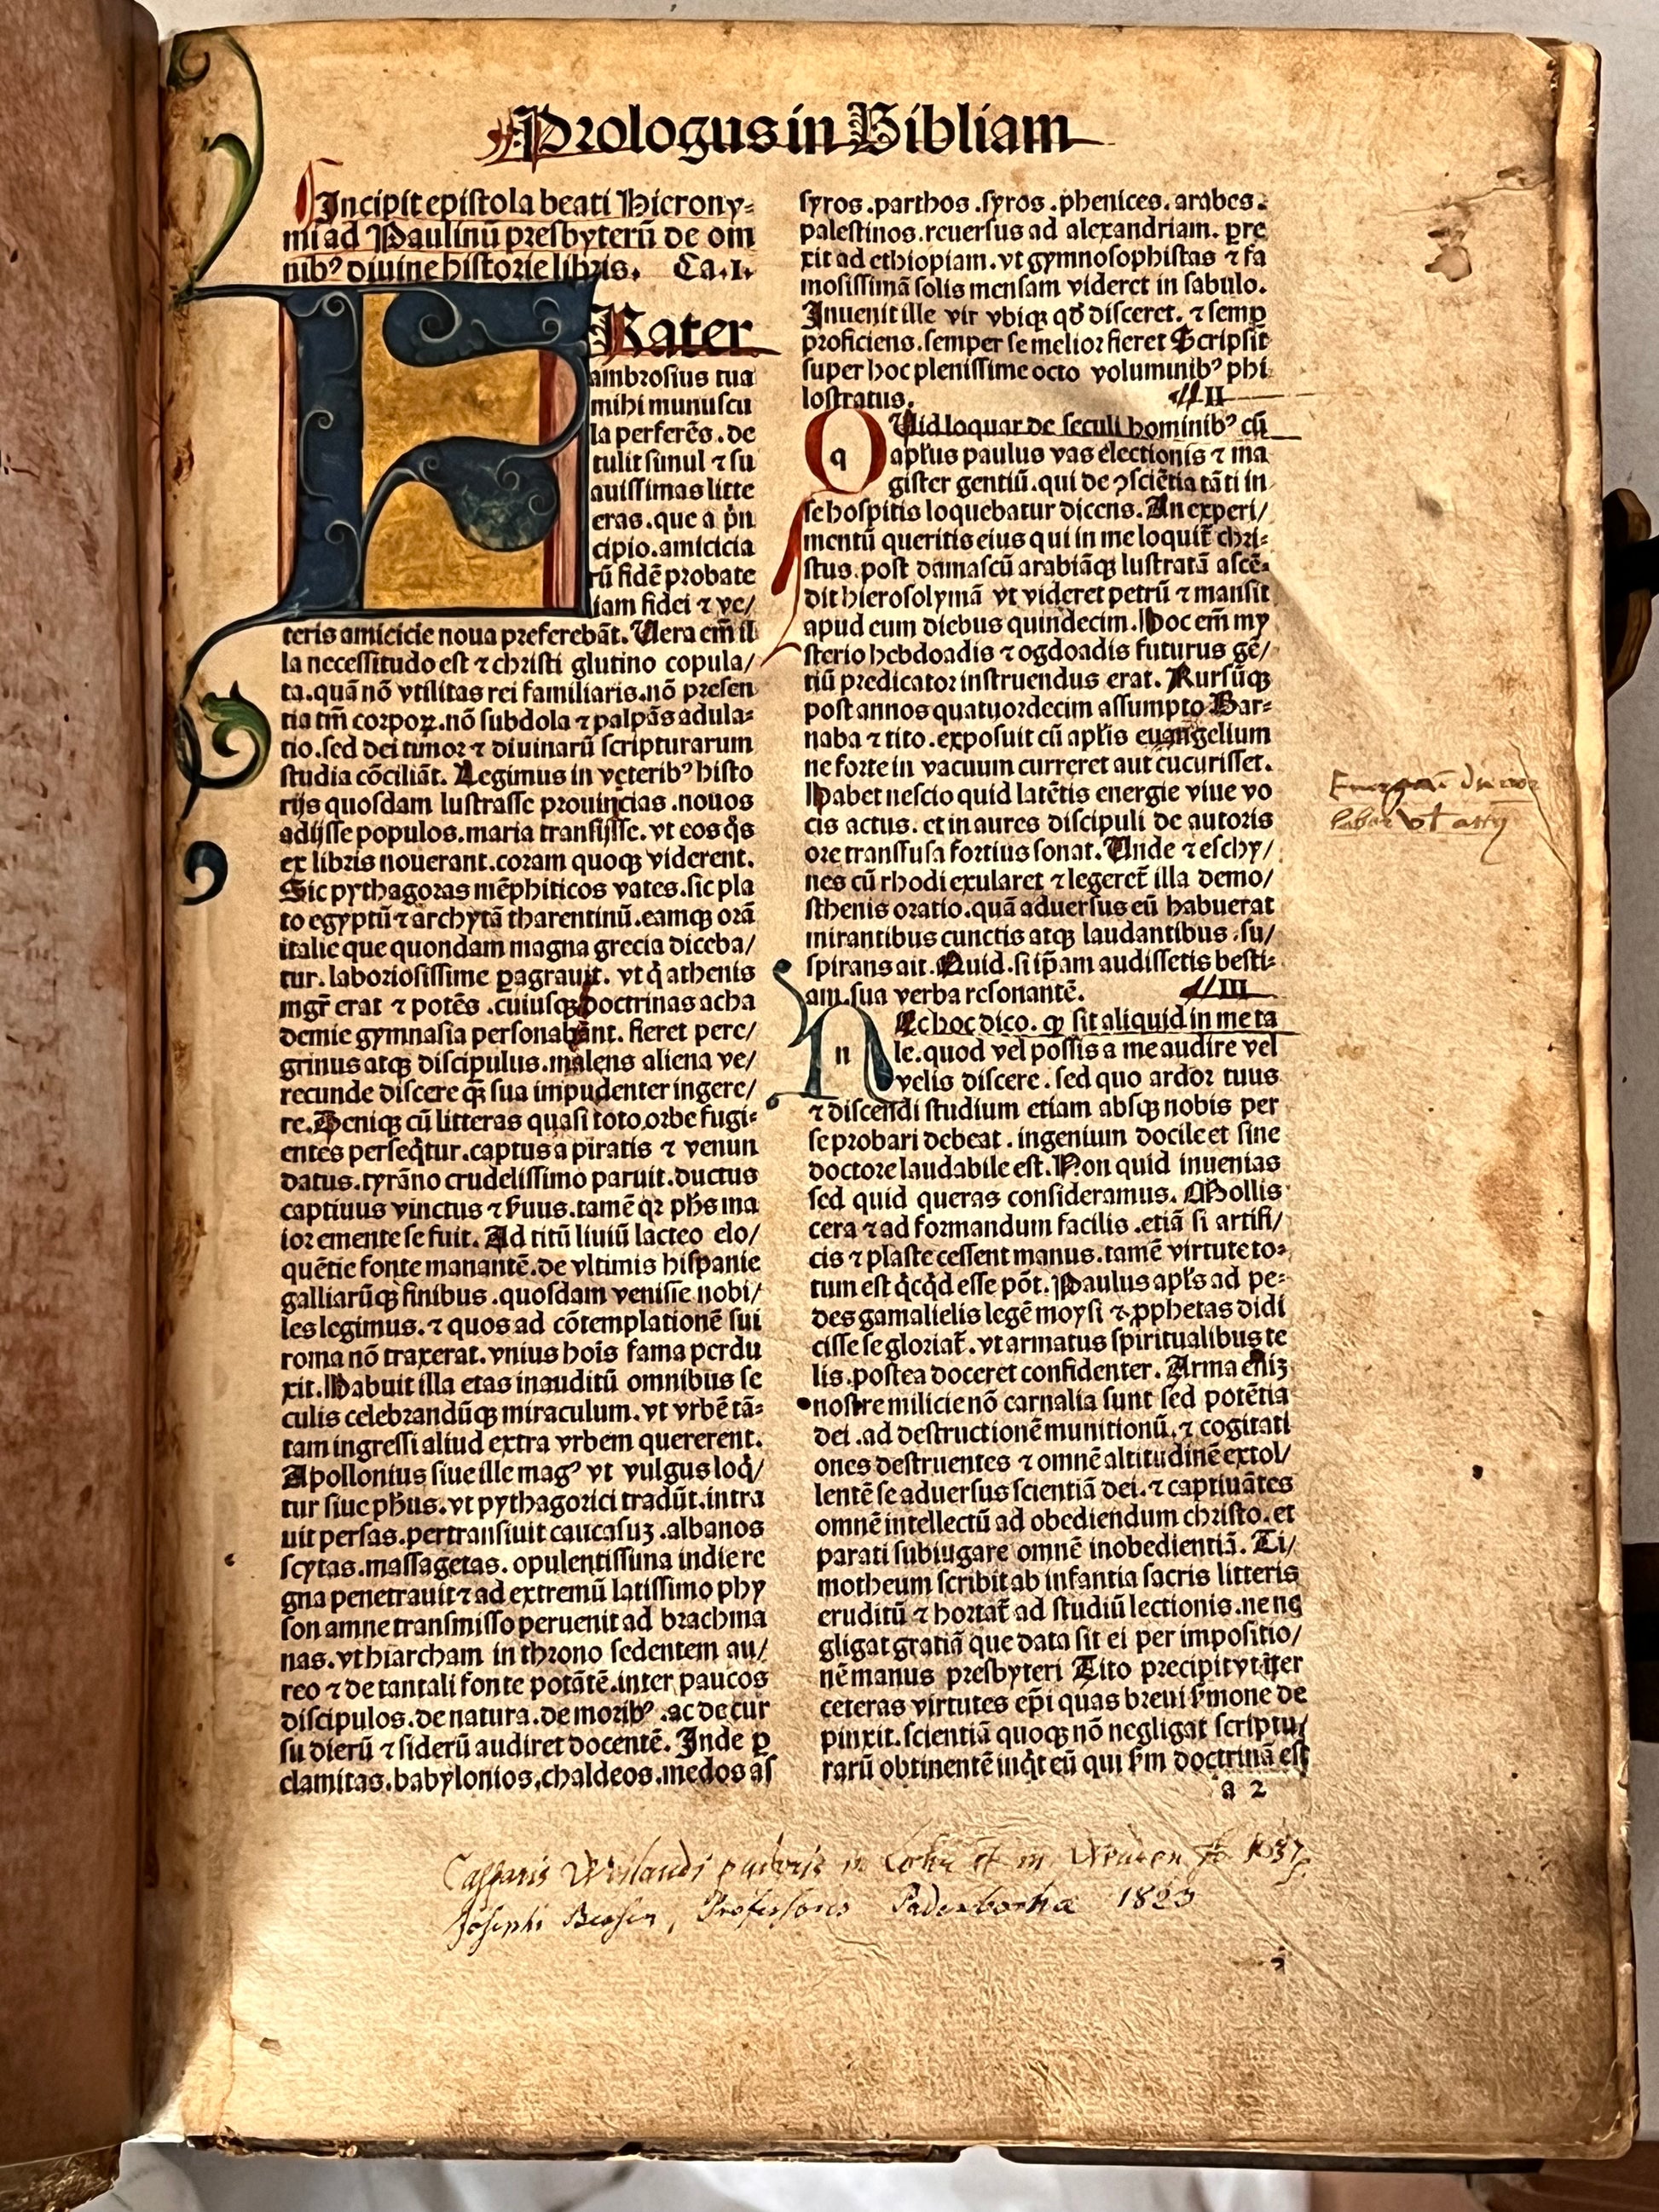 Prologus in Bibliam
Incipit epistola beati Hierony⸗
mi ad Paulinū presbyterū de om
nibꝰ diuine historie libris. Ca.I.
FRater
ambrosius tua
mihi munuscu
la perferēs. de
tulit simul ⁊ su
auissimas litte
eras. que a pͥn
cipio. amicicia
rū fidē probate
iam fidei ⁊ ve/
teris amicicie noua preferebāt. Uera em̄ il
la necessitudo est ⁊ christi glutino copula/
ta. quā nō vtilitas rei familiaris. nō presen
tia tm̄ corpoꝝ. nō subdola ⁊ palpās adula⸗
tio. sed dei timor ⁊ diuinarū scripturarum
studia cōciliāt. Legimus in veteribꝰ histo
rijs quosdam lustrasse prouincias. nouos
adijsse populos. maria transijsse. vt eos qͦs
ex libris nouerant. coram quoqꝫ viderent.
Sic pythagoras mēphiticos vates. sic pla
to egyptū ⁊ archytā tharentinū. eamqꝫ orā
italie que quondam magna grecia diceba/
tur. laboriosissime ꝑagrauit. vt qͥ athenis
mgr̄ erat ⁊ potēs. cuiusqꝫ doctrinas acha
demie gymnasia personabant. fieret pere/
grinus atqꝫ discipulus. malens aliena ve/
recunde discere qꝫ̄ sua impudenter ingere/
re. Deniqꝫ cū litteras quasi toto orbe fugi⸗
entes perseqͥtur. captus a piratis ⁊ venun
datus. tyrāno crudelissimo paruit. ductus
captiuus vinctus ⁊ ẜuus. tamē qꝛ phs̄ ma
ior emente se fuit. Ad titū liuiū lacteo elo/
quētie fonte manantē. de vltimis hispanie
galliarūqꝫ finibus. quosdam venisse nobi/
les legimus. ⁊ quos ad cōtemplationē sui
roma nō traxerat. vnius hoīs fama perdu
xit. Habuit illa etas inauditū omnibus se
culis celebrandūqꝫ miraculum. vt vrbē tā⸗
tam ingressi aliud extra vrbem quererent.
Apollonius siue ille magꝰ vt vulgus loqͥ/
tur siue ph̄us. vt pythagorici tradūt. intra
uit persas. pertransiuit caucasuꝫ. albanos
scytas. massagetas. opulentissima indie re
gna penetrauit ⁊ ad extremū latissimo phy
son amne transmisso peruenit ad brachma
nas. vt hiarcham in throno sedentem au/
reo ⁊ de tantali fonte potātē. inter paucos
discipulos. de natura. de moribꝰ. ac de cur
su dierū ⁊ siderū audiret docentē. Inde ꝑ
elamitas. babylonios, chaldeos. medos as
syros. parthos. syros. phenices. arabes.
palestinos. reuersus ad alexandriam. ꝑre
xit ad ethiopiam. vt gymnosophistas ⁊ fa
mosissimā solis mensam videret in sabulo.
Inuenit ille vir vbiqꝫ qd̄ disceret. ⁊ semꝑ
proficiens. semper se melior fieret Scripsit
super hoc plenissime octo voluminibꝰ phi
lostratus. II
q
QUid loquar de seculi hominibꝰ cū
apl̄us paulus vas electionis ⁊ ma
gister gentiū. qui de ꝯsciētia tāti in
se hospitis loquebatur dicens. An experi/
mentū queritis eius qui in me loquit᷑ chri⸗
stus. post damascū arabiāqꝫ lustratā ascē⸗
dit hierosolymā vt videret petrū ⁊ mansit
apud eum diebus quindecim. Hoc em̄ my
sterio hebdoadis ⁊ ogdoadis futurus gē/
tiū predicator instruendus erat. Rursūqꝫ
post annos quatuordecim assumpto Bar⸗
naba ⁊ tito. exposuit cū apl̄is euangelium
ne forte in vacuum curreret aut cucurisset.
Habet nescio quid latētis energie viue vo
cis actus. et in aures discipuli de autoris
ore transfusa fortius sonat. Unde ⁊ eschy/
nes cū rhodi exularet ⁊ legeret᷑ illa demo/
sthenis oratio. quā aduersus eū habuerat
mirantibus cunctis atqꝫ laudantibus. su/
spirans ait. Quid. si ip̄am audissetis besti⸗
am. sua verba resonantē. III
n
NEc hoc dico. ꝙ sit aliquid in me ta
le. quod vel possis a me audire vel
velis discere. sed quo ardor tuus
⁊ discendi studium etiam absqꝫ nobis per
se probari debeat. ingenium docile et sine
doctore laudabile est. Non quid inuenias
sed quid queras consideramus. Mollis
cera ⁊ ad formandum facilis. etiā si artifi/
cis ⁊ plaste cessent manus. tamē virtute to⸗
tum est qͥcqͥd esse pōt. Paulus apl̄s ad pe⸗
des gamalielis legē moysi ⁊ ꝓphetas didi
cisse se gloriat᷑. vt armatus spiritualibus te
lis. postea doceret confidenter. Arma eniꝫ
nostre milicie nō carnalia sunt sed potētia
dei. ad destructionē munitionū. ⁊ cogitati
ones destruentes ⁊ omnē altitudinē extol/
lentē se aduersus scientiā dei. ⁊ captiuātes
omnē intellectū ad obediendum christo. et
parati subiugare omnē inobedientiā. Ti/
motheum scribit ab infantia sacris litteris
eruditū ⁊ hortat᷑ ad studiū lectionis. ne ne
gligat gratiā que data sit ei per impositio/
nē manus presbyteri Tito precipit vt īter
ceteras virtutes ep̄i quas breui ẜmone de
pinxit. scientiā quoqꝫ nō negligat scriptu/
rarū obtinentē inqͥt eū qui ẜm doctrinā est
a 2
Casparis Wislandi
Josephi Bessen, Professoris Paderbornae 1823